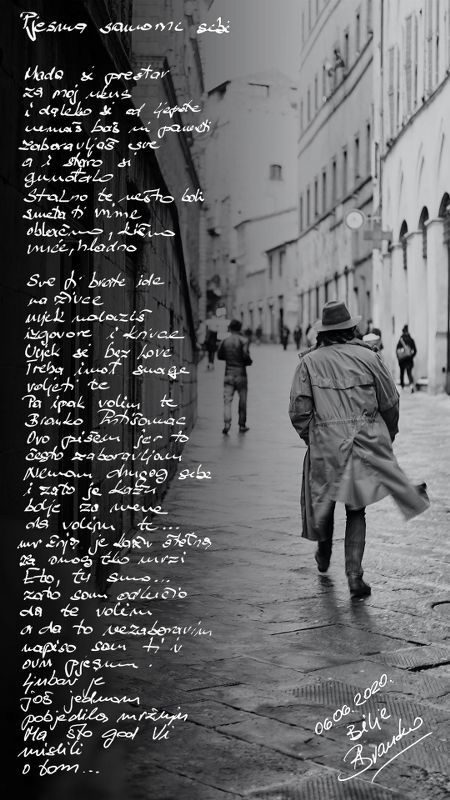 Pjesma samomi sebi
Mada si prestar
za moj ukus
i daleko si od ljepote
nemaš baš ni pameti
zaboravljaš sve
a i staro si
gunđalo
Stalno te nešto boli
smeta ti vrime
oblačno, kišno
vruće, hladno
Sve ti brate ide
na živce
uvjek nalaziš
izgovore i krivce
Uvjek si bez love
Treba imat snage
voljeti te
Pa ipak volim te
Branko
Ovo pišem jer to
često zaboravljam
Nemam drugog sebe
i zato je
bolje za mene
da volim te...
mržnja je štetna
za onog tko mrzi
Eto, tu smo...
zato sam odlučio
da te volim
a da to nezaboravim
napiso sam ti i
ovu pjesmu.
ljubav je
još jednom
pobjedila mržnju
Ma što god Vi
mislili
o tom...
06.06.2020.
Bilje
Branko